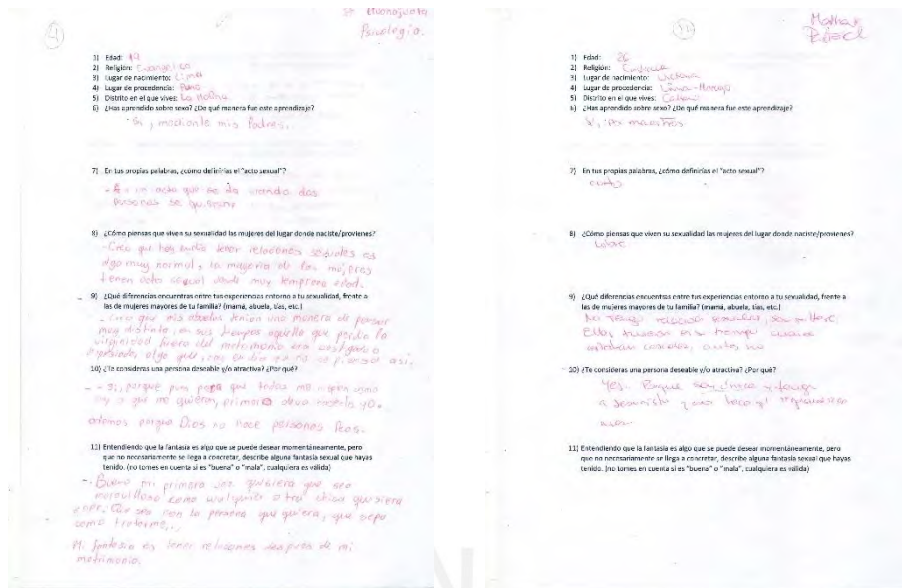 4
Psicologia.
1) Edad: 19
2) Religión: Evangelica
3) Lugar de nacimiento: Lima
4) Lugar de procedencia:
5) Distrito en el que vives: La Molina
6) ¿Has aprendido sobre sexo? ¿De qué manera fue este aprendizaje?
- Si, mediante mis Padres..
7) En tus propias palabras, ¿cómo definirías el "acto sexual"?
- Es un acto que se da cuando dos
personas se quieren.
8) ¿Cómo piensas que viven su sexualidad las mujeres del lugar donde naciste/provienes?
- Creo que hoy en dia tener relaciones sexuales es
algo muy normal, la mayoria de las mujeres
tienen acto sexual desde muy temprana edad.
9) ¿Qué diferencias encuentras entre tus experiencias entorno a tu sexualidad, frente a
las de mujeres mayores de tu familia? (mamá, abuela, tías, etc.)
- Creo que mis abuelas tenian una manera de pensar
muy distinta, en sus tiempos aquella que perdia la
virginidad fuera del matrimonio era castigada o
algo que, en cambio no se piensa asi.
10) ¿Te consideras una persona deseable y/o atractiva? ¿Por qué?
- Si, porque pues para que todos me como
soy o que me quieran, primero devo yo.
ademas porque Dios no hace personas feas.
11) Entendiendo que la fantasía es algo que se puede desear momentáneamente, pero
que no necesariamente se llega a concretar, describe alguna fantasía sexual que hayas
tenido. (no tomes en cuenta si es "buena" o "mala", cualquiera es válida)
- Bueno mi primera vez quisiera que sea
maravilloso como cualquier otra chica quisiera
Que sea con la persona que quiera, que sepa
como tratarme...
Mi fantasia es tener relaciones después de mi
matrimonio.
1) Edad: 26
2) Religión:
3) Lugar de nacimiento:
4) Lugar de procedencia: Lima
5) Distrito en el que vives:
6) ¿Has aprendido sobre sexo? ¿De qué manera fue este aprendizaje?
Si, por maestros
7) En tus propias palabras, ¿cómo definirías el "acto sexual"?
8) ¿Cómo piensas que viven su sexualidad las mujeres del lugar donde naciste/provienes?
Libre
9) ¿Qué diferencias encuentras entre tus experiencias entorno a tu sexualidad, frente a
las de mujeres mayores de tu familia? (mamá, abuela, tías, etc.)
No tengo
10) ¿Te consideras una persona deseable y/o atractiva? ¿Por qué?
Yes. Porque soy única y tengo
11) Entendiendo que la fantasía es algo que se puede desear momentáneamente, pero
que no necesariamente se llega a concretar, describe alguna fantasía sexual que hayas
tenido. (no tomes en cuenta si es "buena" o "mala", cualquiera es válida)